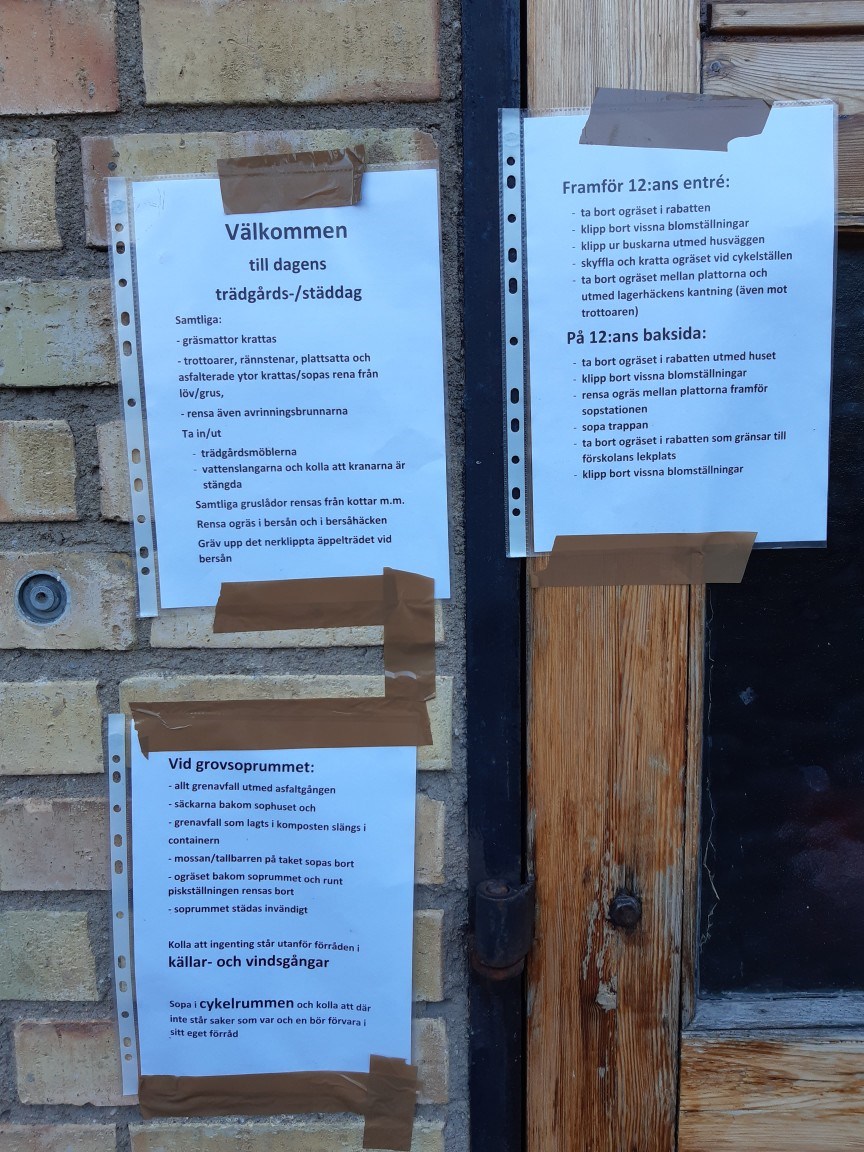 Välkommen
till dagens
trädgårds-/städdag
Samtliga:
- gräsmattor krattas
- trottoarer, rännstenar, plattsatta och
asfalterade ytor krattas/sopas rena från
löv/grus,
- rensa även avrinningsbrunnarna
Ta in/ut
- trädgårdsmöblerna
- vattenslangarna och kolla att kranarna är
stängda
Samtliga gruslådor rensas från kottar m.m.
Rensa ogräs i bersån och i bersåhäcken
Gräv upp det nerklippta äppelträdet vid
bersån
Framför 12:ans entré:
- ta bort ogräset i rabatten
- klipp bort vissna blomställningar
- klipp ur buskarna utmed husväggen
- skyffla och kratta ogräset vid cykelställen
- ta bort ogräset mellan plattorna och
utmed lagerhäckens kantning (även mot
trottoaren)
På 12:ans baksida:
- ta bort ogräset i rabatten utmed huset
- klipp bort vissna blomställningar
- rensa ogräs mellan plattorna framför
sopstationen
- sopa trappan
- ta bort ogräset i rabatten som gränsar till
förskolans lekplats
- klipp bort vissna blomställningar
Vid grovsoprummet:
- allt grenavfall utmed asfaltgången
- säckarna bakom sophuset och
- grenavfall som lagts i komposten slängs i
containern
- mossan/tallbarren på taket sopas bort
- ogräset bakom soprummet och runt
piskställningen rensas bort
- soprummet städas invändigt
Kolla att ingenting står utanför förråden i
källar- och vindsgångar
Sopa i cykelrummen och kolla att där
inte står saker som var och en bör förvara i
sitt eget förråd